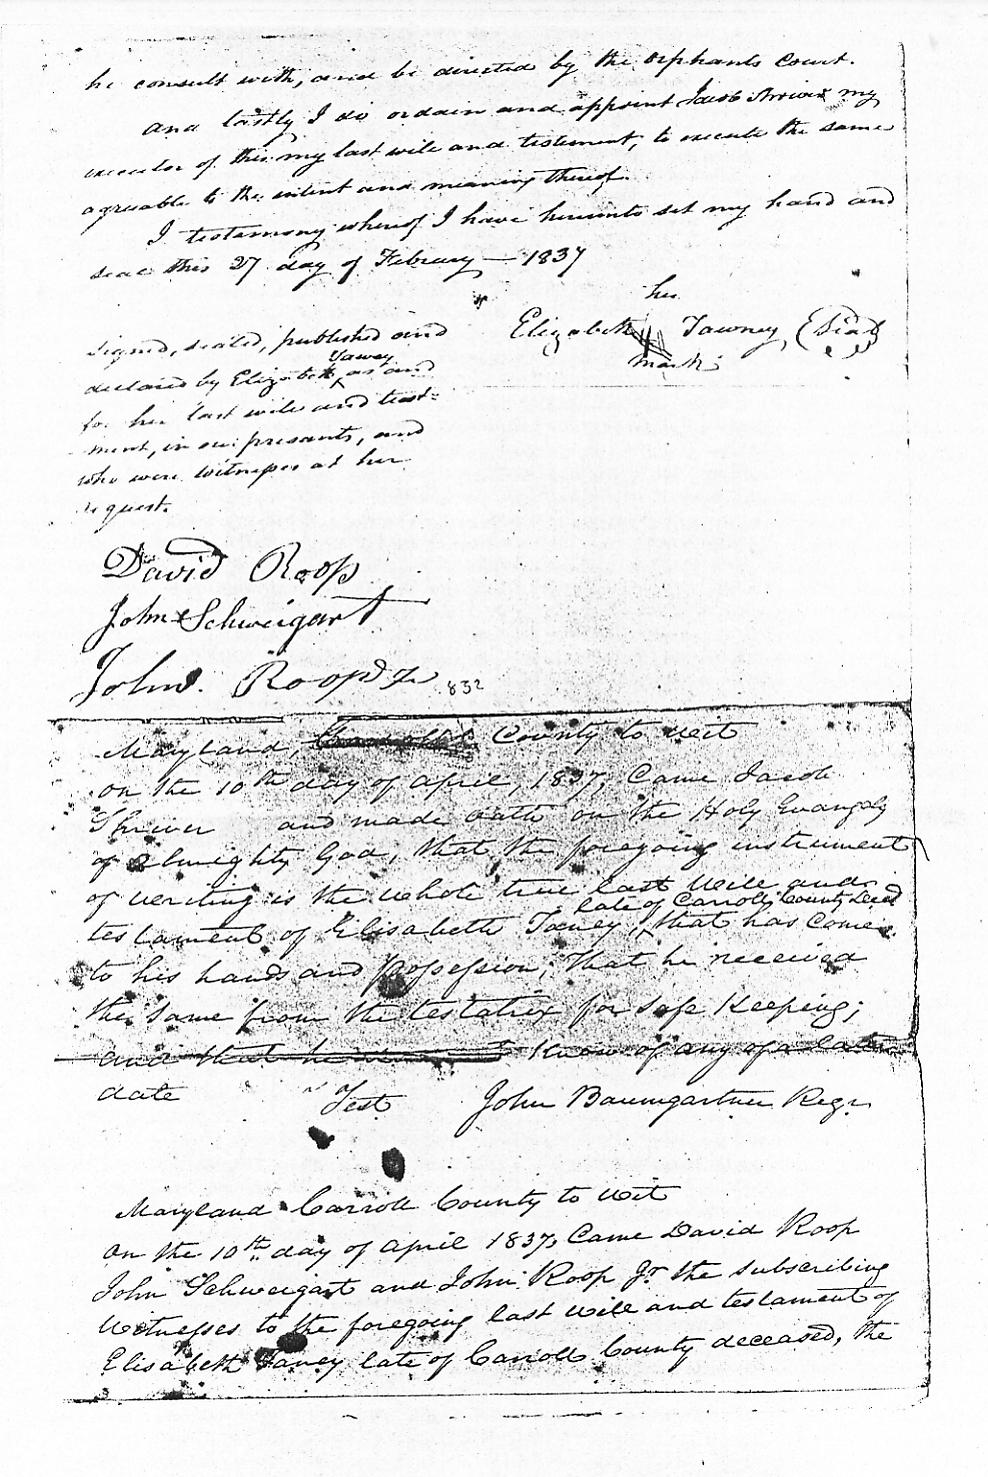 he consult with, and be directed by the orphants Court.
and lastly I do ordain and appoint Jacob Shriver my
executor of this my last will and testement, to execute the same
agreeable to the intent and meaning thereof.
I testamony whereof I have hereunto set my hand and
seal this 27 day of Febuary — 1837
her
Elizabeth Tawney (Seal)
mark
signed, sealed, published and
Tawey
declared by Elizabeth, as and
for her last will and testa-
ment, in our presants, and
who were witnesses at her
request.
David Roop
John Schweigart
John Roop Jr
832
Maryland, County to wit
on the 10th day of april, 1837, Came Jacob
Shriver and made oath on the Holy Evangely
of almighty God, that the foregoing instrument
of writing is the whole true last will and
late of Carroll County Decd
testament of Elisabeth Taney, that has come
to his hands and possession; that he received
the same from the testatrix for safe Keeping;
and that he know of any of a later
date
Test John Baumgartner Regr
Maryland Carroll County to wit
on the 10th day of april 1837, Came David Roop
John Schweigart and John Roop Jr the subscribing
Witnesses to the foregoing last will and testament of
Elisabeth Taney late of Carroll County deceased, the